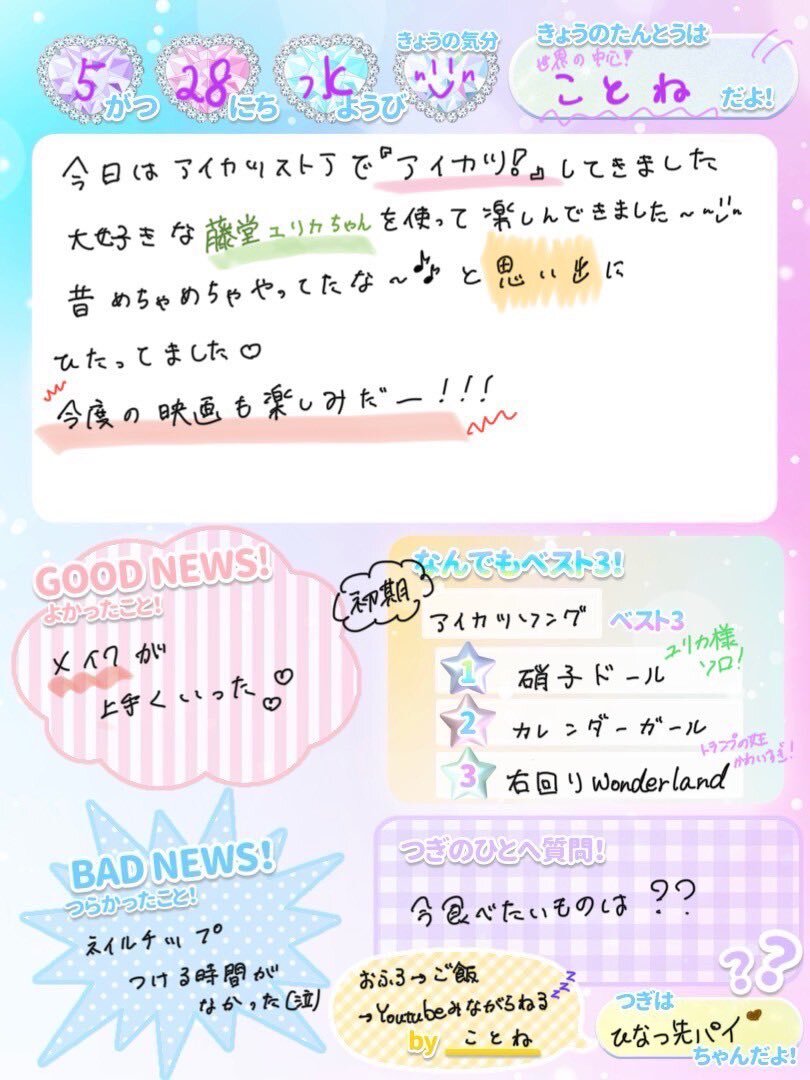 きょうの気分
きょうのたんとうは
世界の中心!
5がつ 28にち 水ようび
ことね だよ!
今日はアイカツストアで『アイカツ!』してきました
大好きな藤堂ユリカちゃんを使って楽しんできました~
昔めちゃめちゃやってたな~♪♪と思い出に
ひたってました♡
今度の映画も楽しみだー!!!
GOOD NEWS!
よかったこと!
メイクが
上手くいった♡♡
なんでもベスト3!
初期
アイカツソング ベスト3
1 硝子ドール
ユリカ様
ソロ!
2 カレンダーガール
3 右回りWonderland
トランプの女王
かわいすぎ!
BAD NEWS!
つらかったこと!
ネイルチップ
つける時間が
なかった(泣)
つぎのひとへ質問!
今食べたいものは??
??
おふろ→ご飯
→Youtubeみながらねる
zzz
by ことね
つぎは
ひなっ先パイ
ちゃんだよ!